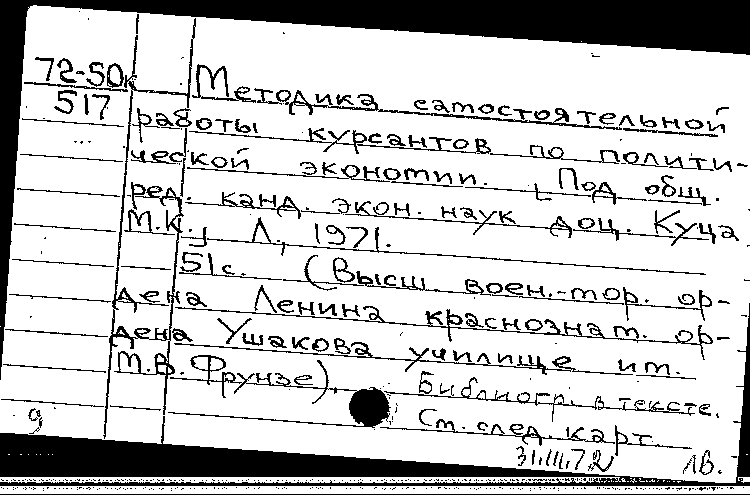 72-50к Методика самостоятельной
517 работы курсантов по полити-
ческой экономии. [Под общ.
ред. канд. экон. наук доц. Куца
М.К.] Л., 1971.
51с. (Высш. воен.-мор. ор-
дена Ленина краснознам. ор-
дена Ушакова училище им.
М.В. Фрунзе). Библиогр. в тексте.
См. след. карт.
9 31.III.72 ЛВ.